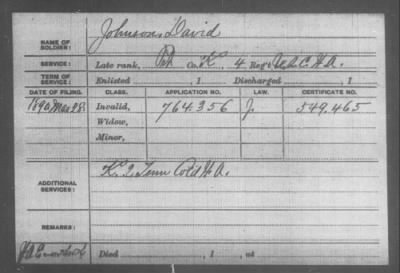 NAME OF SOLDIER: Johnson, David
SERVICE: Late rank, Pvt Co. K, 4 Reg't U.S.C.H.A.
TERM OF SERVICE: Enlisted , 1 Discharged , 1
DATE OF FILING. CLASS. APPLICATION NO. LAW. CERTIFICATE NO.
1890 Mar 28 Invalid, 764.356 J. 549,465
Widow,
Minor,
ADDITIONAL SERVICES: K. 2 Tenn Cold H.A.
REMARKS:
Died , 1 , at